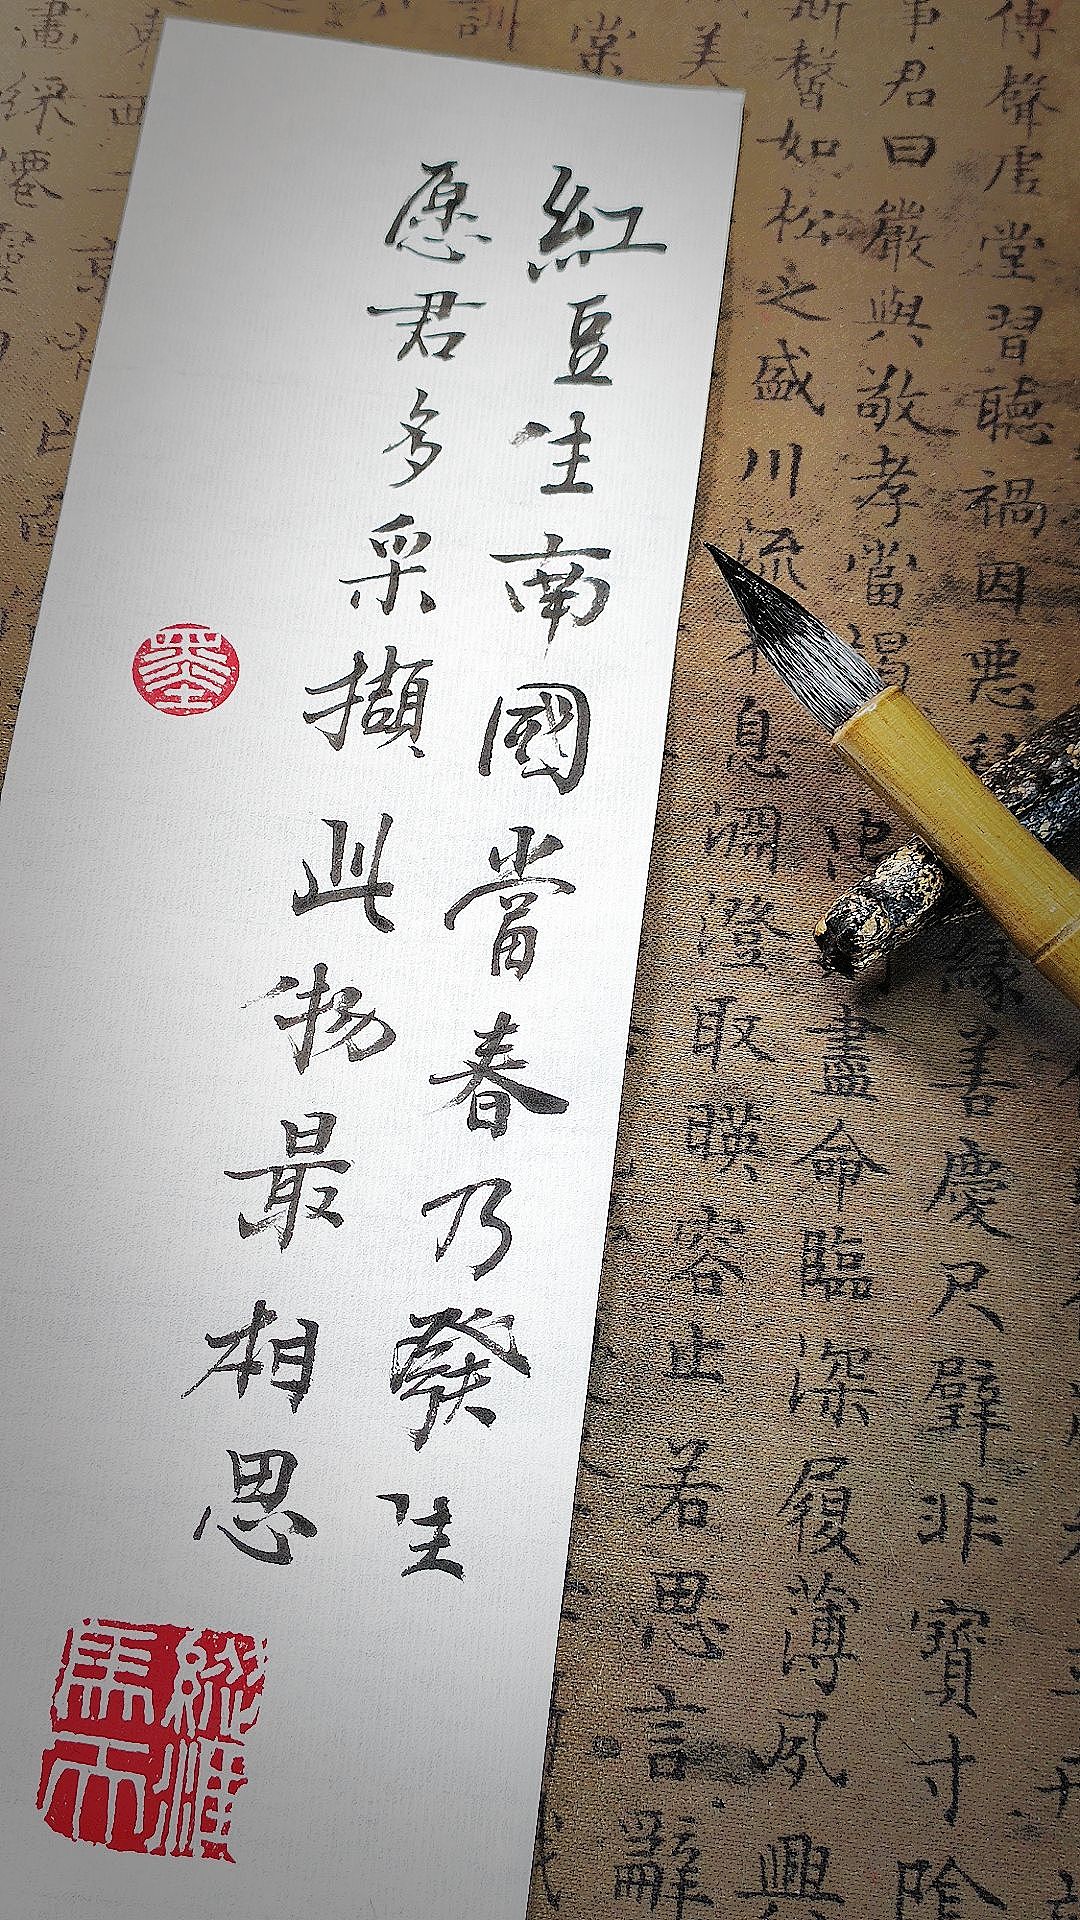 紅豆生南國當春乃發生
愿君多采擷此物最相思
傳聲虛堂習聽禍因惡積緣善慶尺璧非寶寸陰
事君曰嚴與敬孝當竭忠則盡命臨深履薄夙興
斯馨如松之盛川流不息淵澄取暎容止若思言辭
美
棠
訓
東西二京背
畫綵僊靈